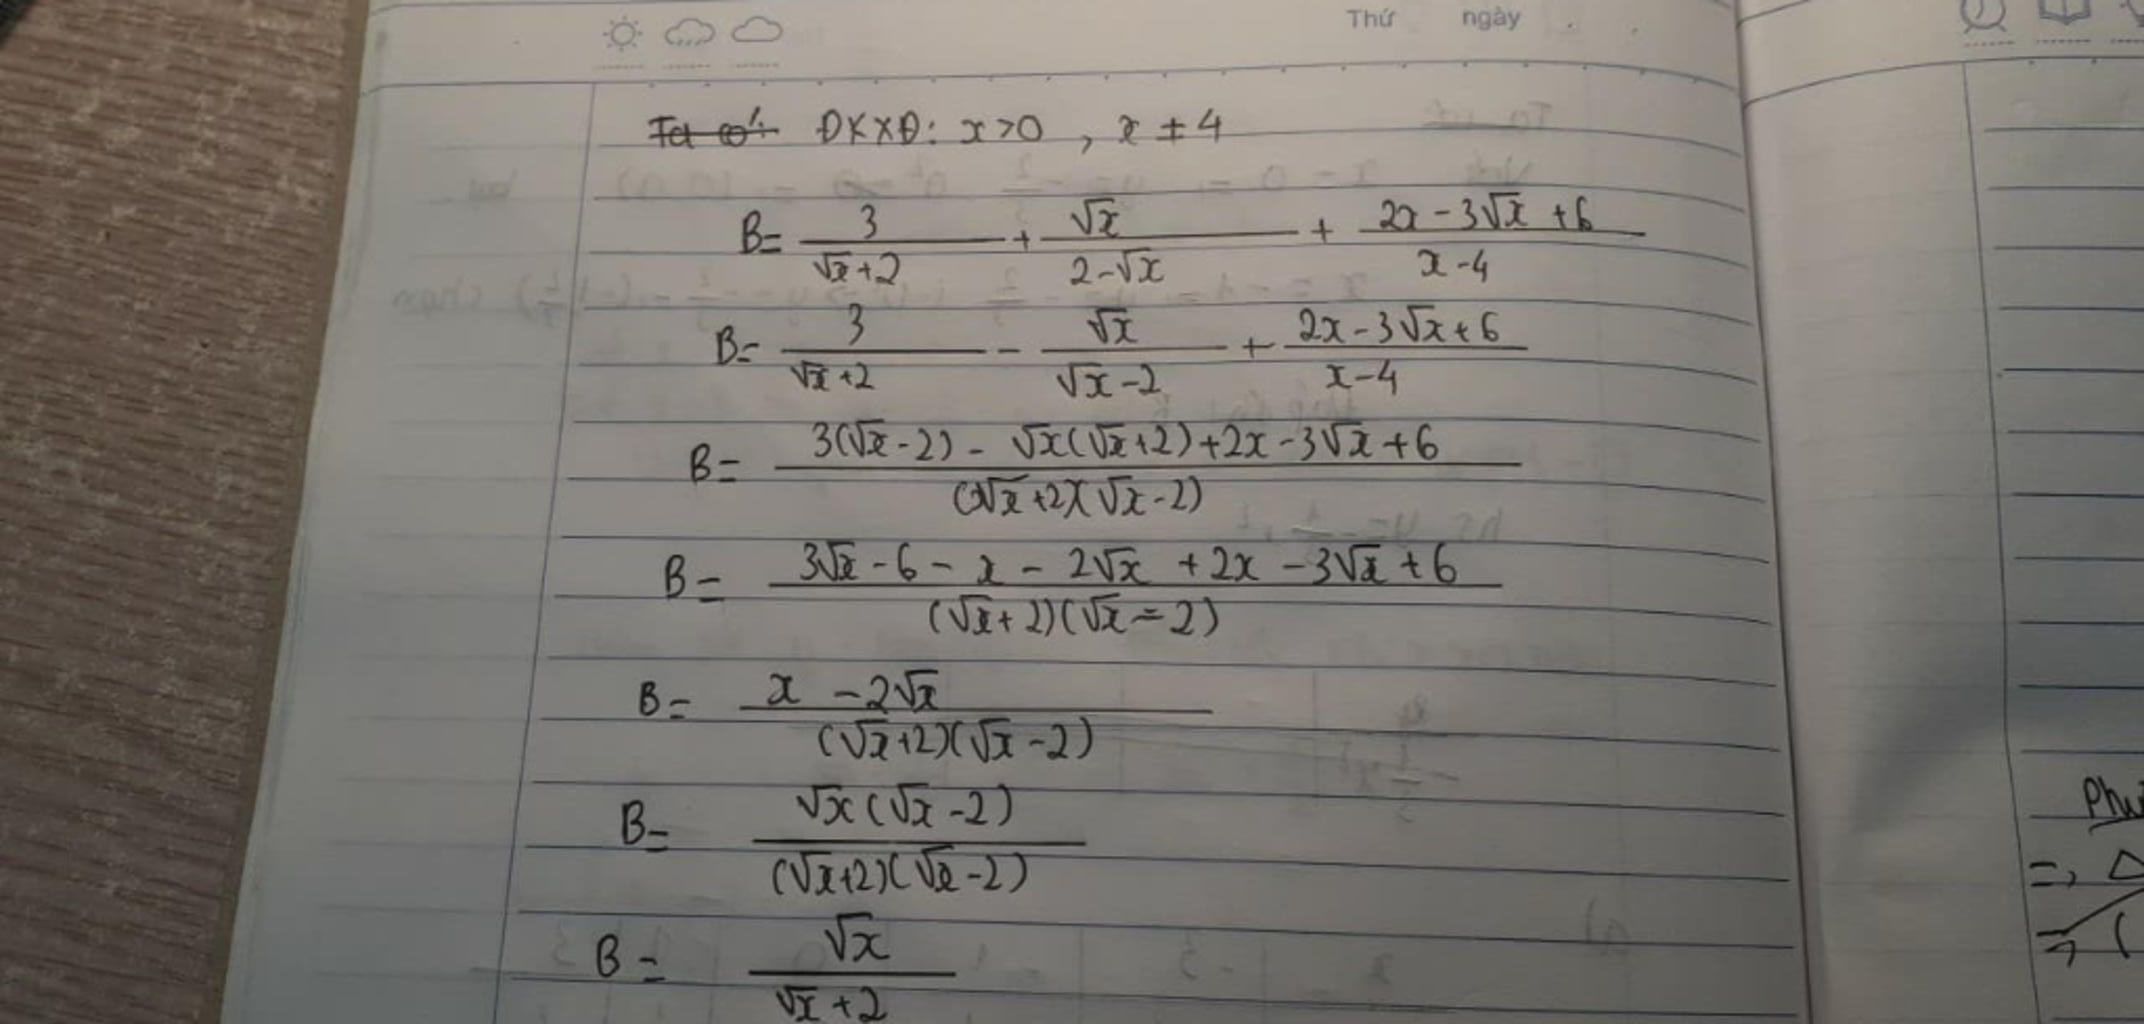 Thứ ngày
Ta có: ĐKXĐ: x>0 , x ≠ 4
B= 3/(√x+2) + √x/(2-√x) + (2x-3√x+6)/(x-4)
B= 3/(√x+2) - √x/(√x-2) + (2x-3√x+6)/(x-4)
B= (3(√x-2) - √x(√x+2)+2x-3√x+6)/((√x+2)(√x-2))
B= (3√x-6-x-2√x+2x-3√x+6)/((√x+2)(√x-2))
B= (x-2√x)/((√x+2)(√x-2))
B= (√x(√x-2))/((√x+2)(√x-2))
B= √x/(√x+2)